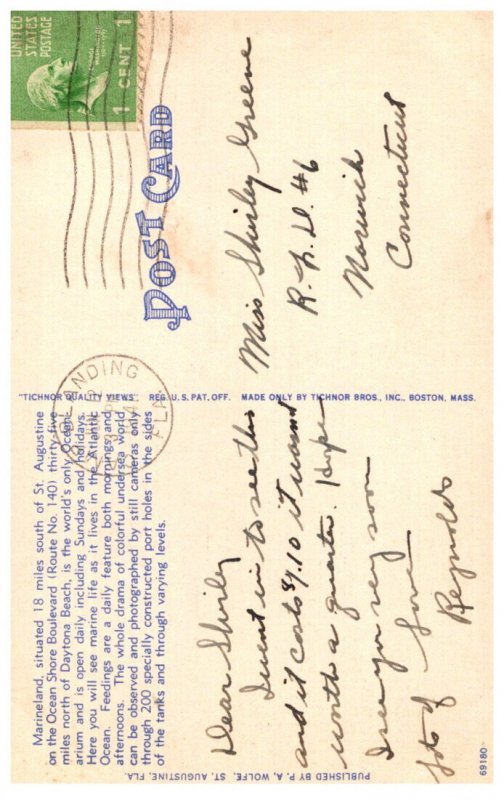 Marineland, situated 18 miles south of St. Augustine
on the Ocean Shore Boulevard (Route No. 140) thirty-five
miles north of Daytona Beach, is the world's only Ocean-
arium and is open daily including Sundays and holidays.
Here you will see marine life as it lives in the Atlantic
Ocean. Feedings are a daily feature both mornings and
afternoons. The whole drama of colorful undersea world
can be observed and photographed by still cameras only
through 200 specially constructed port holes in the sides
of the tanks and through varying levels.
Dear Shirley
I went in to see this
and it costs $1.10 it wasnt
worth a quarter. Hope
I see you very soon
lots of Love
Reynolds
PUBLISHED BY P. A. WOLFE, ST. AUGUSTINE, FLA.
69180
"TICHNOR QUALITY VIEWS" REG. U.S. PAT. OFF. MADE ONLY BY TICHNOR BROS., INC., BOSTON, MASS.
LANDING
FLA.
UNITED
STATES
POSTAGE
1 CENT 1
POST CARD
Miss Shirley Greene
R.F.D. #6
Norwich
Connecticut